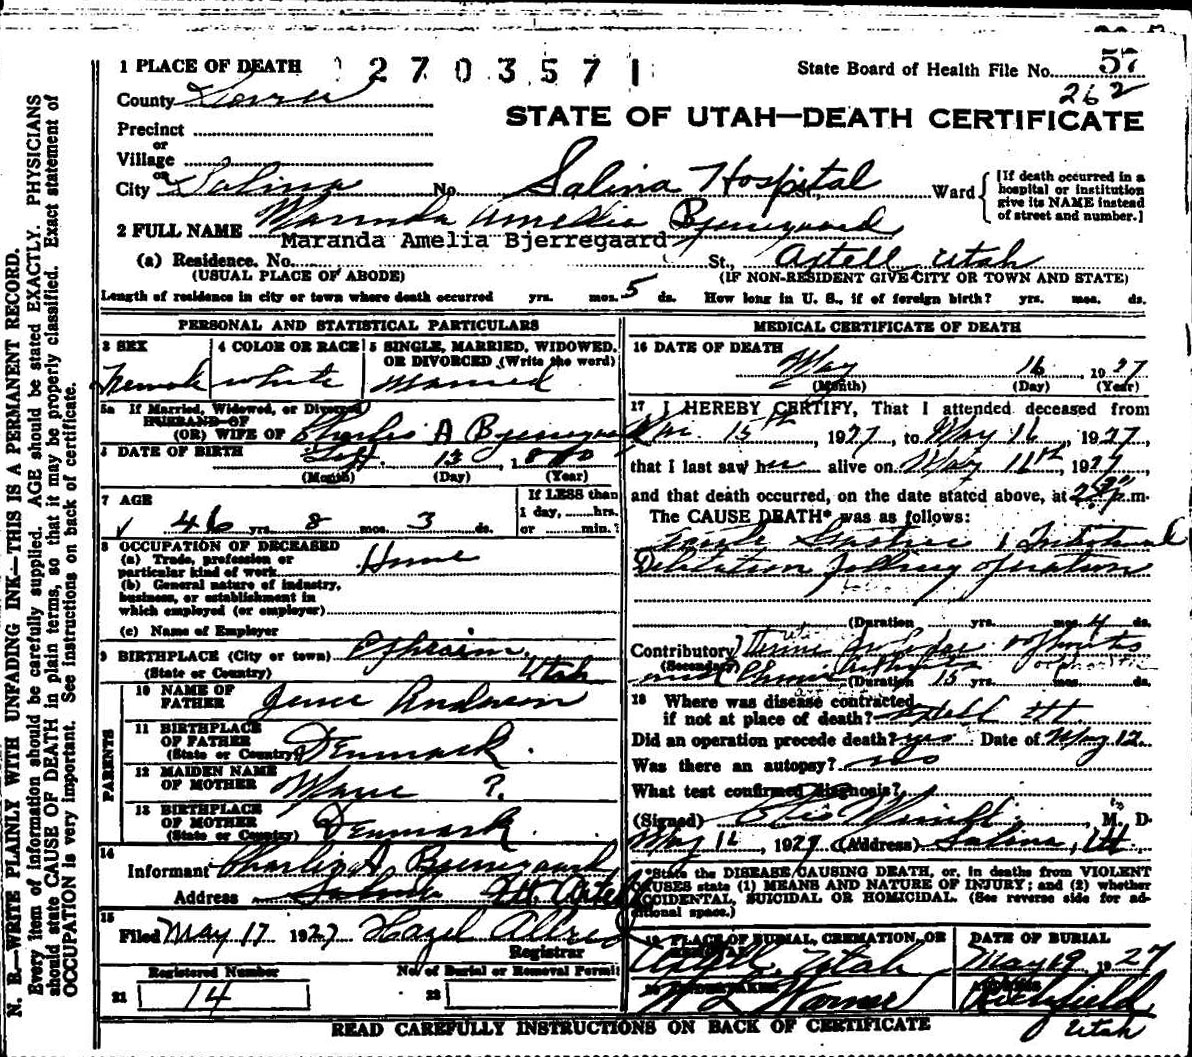 57
1 PLACE OF DEATH 2703571 State Board of Health File No.
262
County Sevier
STATE OF UTAH—DEATH CERTIFICATE
Precinct
or
Village
or
City Salina No. Salina Hospital St., Ward
[If death occurred in a hospital or institution give its NAME instead of street and number.]
2 FULL NAME Maranda Amelia Bjerregaard
Maranda Amelia Bjerregaard
(a) Residence. No. St., Axtell, Utah
(USUAL PLACE OF ABODE) (IF NON-RESIDENT GIVE CITY OR TOWN AND STATE)
Length of residence in city or town where death occurred yrs. mos. 5 ds. How long in U. S., if of foreign birth? yrs. mos. ds.
PERSONAL AND STATISTICAL PARTICULARS
3 SEX
Female
4 COLOR OR RACE
white
5 SINGLE, MARRIED, WIDOWED, OR DIVORCED (Write the word)
Married
5a If Married, Widowed, or Divorced
HUSBAND OF
(OR) WIFE OF Charles A Bjerregaard
6 DATE OF BIRTH Sept. 13, 1880
(Month) (Day) (Year)
7 AGE
46 yrs. 8 mos. 3 ds.
If LESS than
1 day, hrs.
or min.?
8 OCCUPATION OF DECEASED
(a) Trade, profession or
particular kind of work Home
(b) General nature of industry,
business, or establishment in
which employed (or employer)
(c) Name of Employer
9 BIRTHPLACE (City or town) Ephraim,
(State or Country) Utah
PARENTS
10 NAME OF
FATHER Anderson
11 BIRTHPLACE
OF FATHER
(State or Country) Denmark.
12 MAIDEN NAME
OF MOTHER Marie ?
13 BIRTHPLACE
OF MOTHER
(State or Country) Denmark.
14
Informant Charlie A Bjerregaard
Address Salina Ut. Axtell
15
Filed May 17 1927 Hazel Allred
Registrar
Registered Number No. of Burial or Removal Permit
21 14 22
MEDICAL CERTIFICATE OF DEATH
16 DATE OF DEATH
May 16, 1927
(Month) (Day) (Year)
17 I HEREBY CERTIFY, That I attended deceased from
15th, 1927, to May 16, 1927,
that I last saw her alive on May 16th, 1927
and that death occurred, on the date stated above, at p.m.
The CAUSE DEATH* was as follows:
Acute Gastric Intestinal
Dilitation following operation
(Duration yrs. mos. 4 ds.
Contributory
(Secondary)
(Duration 15 yrs. mos. ds.
18 Where was disease contracted
if not at place of death? Axtell Ut.
Did an operation precede death? yes Date of May 12
Was there an autopsy? no
What test confirmed diagnosis?
(Signed) M. D.
May 16, 1927 (Address) Salina, Ut.
*State the DISEASE CAUSING DEATH, or, in deaths from VIOLENT
CAUSES state (1) MEANS AND NATURE OF INJURY; and (2) whether
ACCIDENTAL, SUICIDAL OR HOMICIDAL. (See reverse side for additional space.)
19 PLACE OF BURIAL, CREMATION, OR
REMOVAL
Utah
DATE OF BURIAL
May 19 1927
20 UNDERTAKER
W L Warner
ADDRESS
Richfield
Utah
READ CAREFULLY INSTRUCTIONS ON BACK OF CERTIFICATE
N. B.—WRITE PLAINLY WITH UNFADING INK—THIS IS A PERMANENT RECORD.
Every item of information should be carefully supplied. AGE should be stated EXACTLY. PHYSICIANS
should state CAUSE OF DEATH in plain terms, so that it may be properly classified. Exact statement of
OCCUPATION is very important. See instructions on back of certificate.